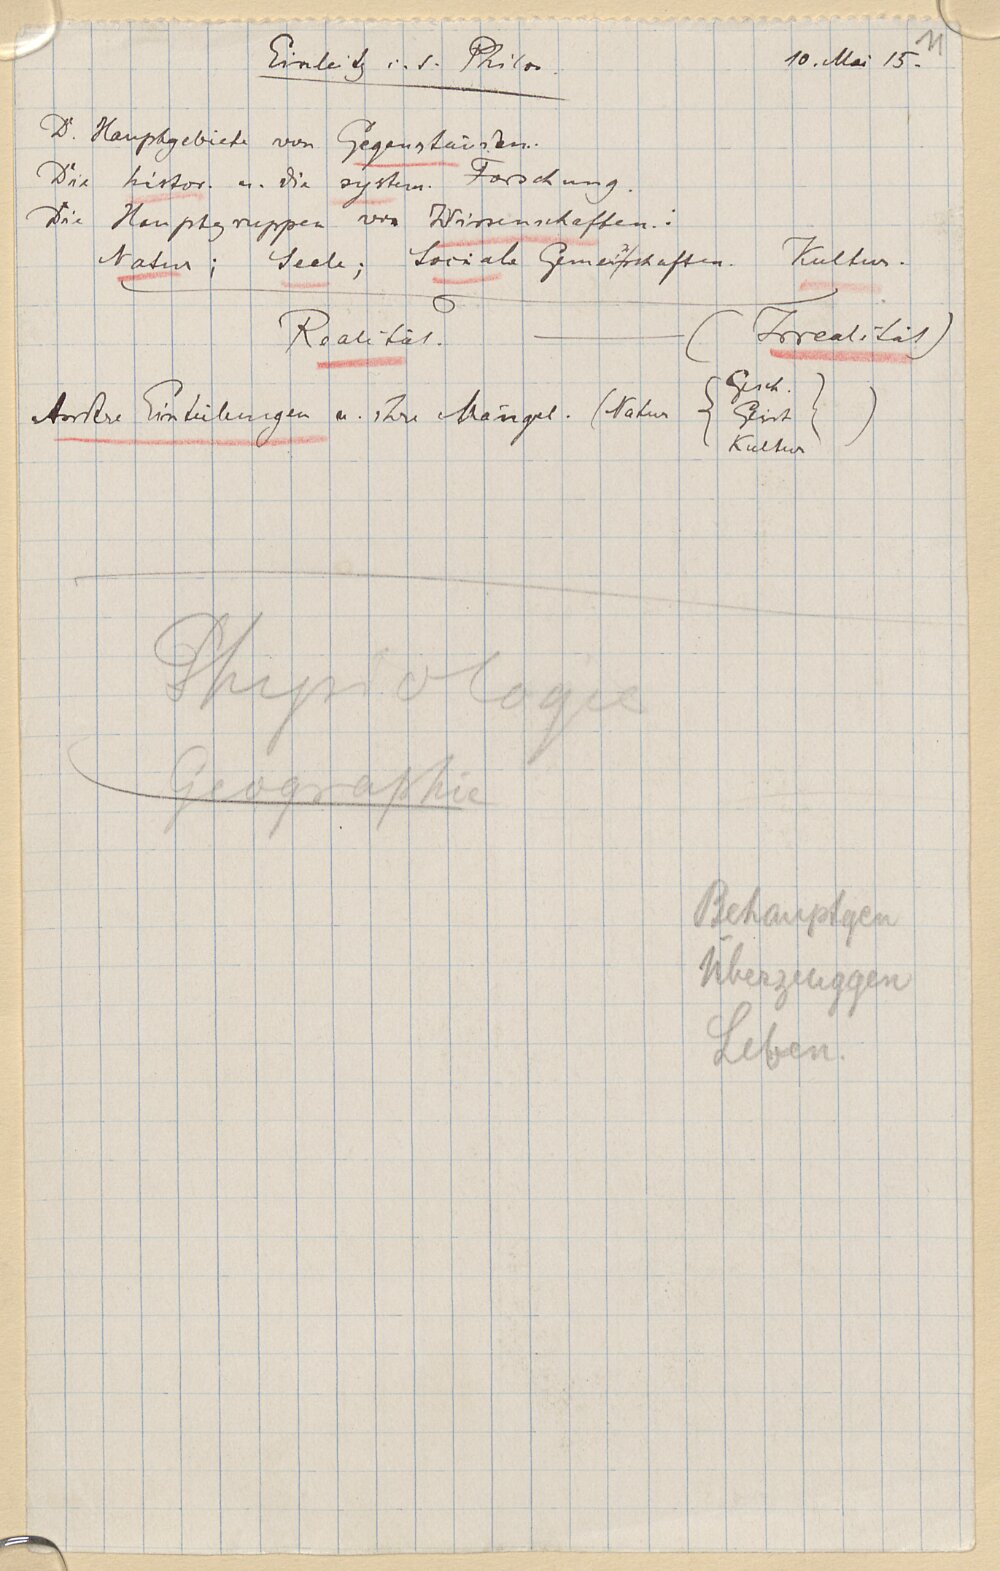 11
Einleitg i. d. Philos. 10. Mai 15.
D. Hauptgebiete von Gegenständen.
Die histor. u. die system. Forschung.
Die Hauptgruppen von Wissenschaften:
Natur; Seele; Sociale Gemeinschaften. Kultur.
Realität. — (Irrealität)
Andere Einteilungen u. ihre Mängel. (Natur { Gesch. Geist Kultur } )
Physiologie
Geographie
Behauptgen
Überzeuggen
Leben.